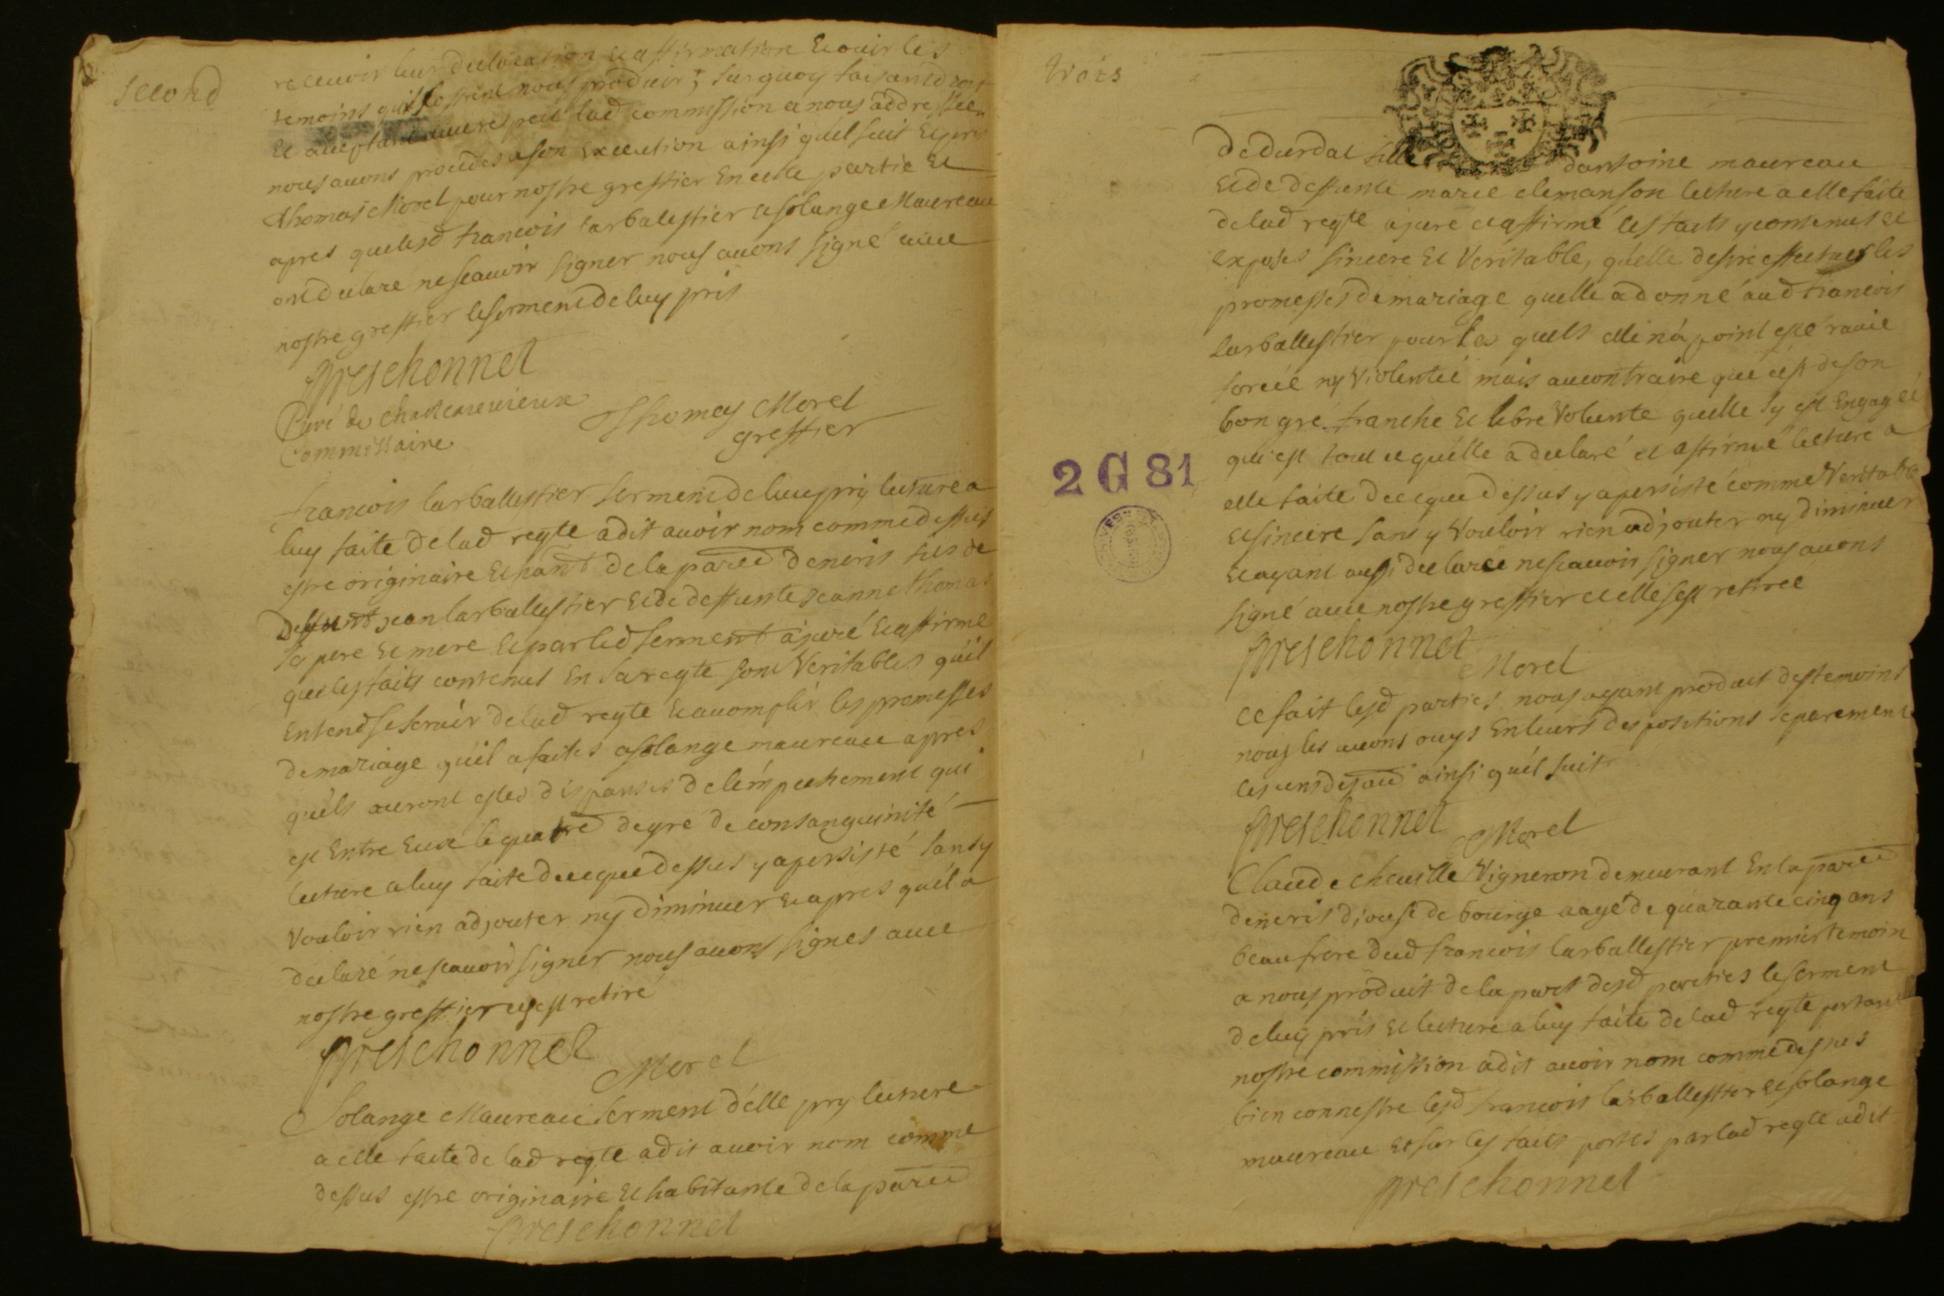 second
recevoir leur declaration et affirmation et ouir les
temoins quils nous produir; surquoy faisant droit
Et acceptant lad commission a nous addressée
nous avons procedés a son execution ainsi quil suit Et pris
Thomas Morel pour nostre greffier En celle partie Et
apres que lesd francois larbalestier et solange Maureau
ont declaré ne scauoir signer nous auons signé auec
nostre greffier le serment de luy pris
Preschonnet
Curé de chasteauvieux
Commissaire
Thomas Morel
greffier
francois larballestier serment de luy pris lecture a
luy faite de lad reqte a dit avoir nom comme dessus
estre originaire et hant de la paroe de neris fils de
deffunt jean larballestier et de deffunte Jeanne thomas
ses pere et mere Et par led serment a juré et affirmé
que les faits contenus En sa reqte sont Veritables qu'il
Entend se servir de lad reqte et accomplir les promesses
de mariage qu'il a faites a solange maureau apres
qu'ils auront estes dispansés de lempechement qui
est Entre Eux le quatre degré de consanguinité
lecture a luy faite de ce que dessus y a persisté sans y
Vouloir rien adjouter ny diminuer Et apres qu'il a
declaré ne scauoir signer nous auons signés auec
nostre greffier et sest retiré
Preschonnet
Morel
Solange Maureau serment d'elle pris lecture
a elle faite de lad reqte a dit auoir nom comme
dessus estre originaire et habitante de la paroe
Preschonnet
trois
De durdat fille dantoine maureau
Et de deffunte marie clemanson lecture a elle faite
de lad reqte a juré et affirmé les faits y contenus et
exposés sincere Et Veritable, qu'elle desire effectuer les
promesses de mariage qu'elle a donné aud francois
larballestier pour les quels elle n'a point esté ravie
forcée ny Violentée mais au contraire que c'est de son
bon gre franche Et libre Volunte quelle sy est Engagée
qui est tout ce qu'elle a declaré et affirmé lecture a
elle faite de ce que dessus y a persisté comme Veritable
et sincere sans y Vouloir rien adjouter ny diminuer
Et ayant aussi declarée ne scauoir signer nous auons
signé auec nostre greffier et elle s'est retiree
Preschonnet
Morel
2 G 81
Ce fait lesd parties nous ayant produit des temoins
nous les auons ouys En leurs depositions separement
ainsi qu'il suit
Preschonnet
Morel
Claude cheville Vigneron demeurant En la paroe
de neris diouse de bourge aagé de quarante cinq ans
beau frere dud francois larballestier premier temoin
a nous produit de la part desd parties le serment
de luy pris Et lecture a luy faite de lad reqte portant
nostre commission a dit auoir nom comme dessus
bien connestre lesd francois larballestier Et solange
maureau Et sur les faits portés par lad reqte a dit
Preschonnet